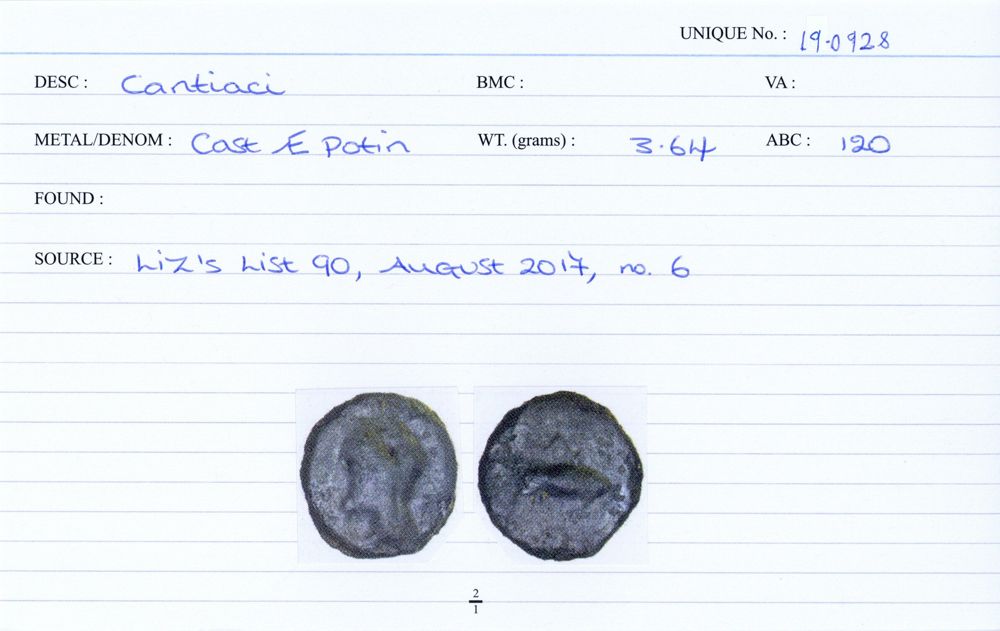 UNIQUE No. : 19-0928
DESC : Cantiaci BMC : VA :
METAL/DENOM : Cast Æ Potin WT. (grams) : 3.64 ABC : 120
FOUND :
SOURCE : Liz's List 90, August 2017, no. 6
2
1